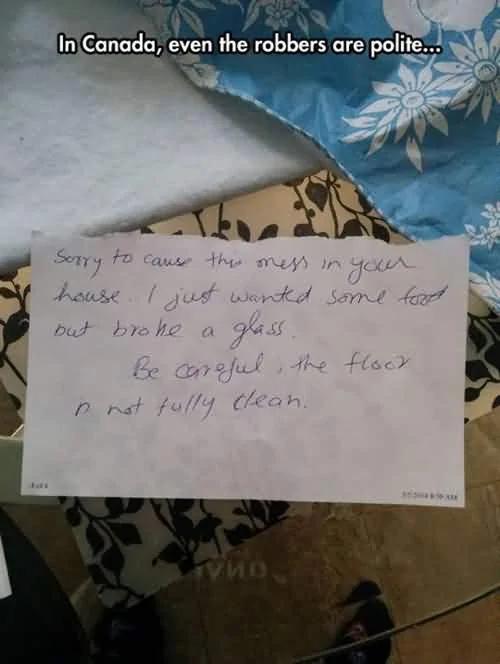 In Canada, even the robbers are polite...
Sorry to cause this mess in your
house. I just wanted some food
but broke a glass.
Be careful, the floor
is not fully clean.